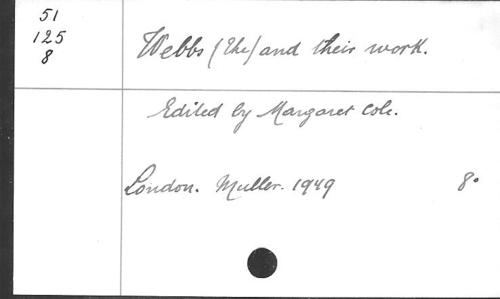 51
125
8
Webbs (The) and their work.
Edited by Margaret Cole.
London. Muller. 1949 8°